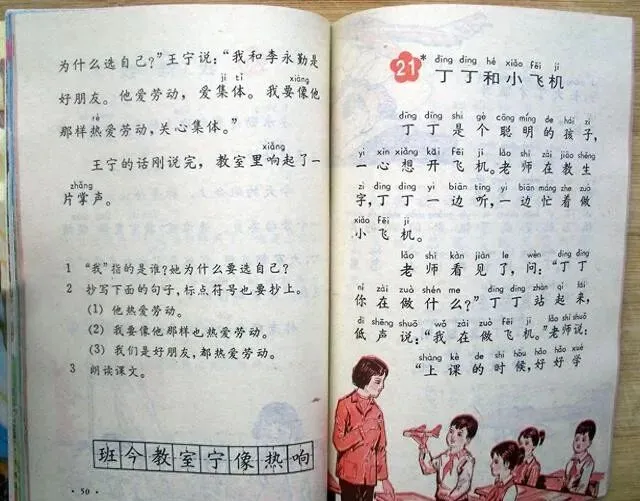 为什么选自己?”王宁说:“我和李永勤是
jí tǐ xiàng
好朋友。他爱劳动,爱集体。我要像他
rè
那样热爱劳动,关心集体。”
xiǎng
王宁的话刚说完,教室里响起了一
zhǎng
片掌声。
1 “我”指的是谁?她为什么要选自己?
2 抄写下面的句子,标点符号也要抄上。
(1) 他热爱劳动。
(2) 我要像他那样也热爱劳动。
(3) 我们是好朋友,都热爱劳动。
3 朗读课文。
班今教室宁像热响
· 50 ·
dīng dīng hé xiǎo fēi jī
21 * 丁丁和小飞机
dīng dīng shì gè cōng míng de hái zi
丁丁是个聪明的孩子,
yì xīn xiǎng kāi fēi jī lǎo shī zài jiāo shēng
一心想开飞机。老师在教生
zì dīng dīng yì biān tīng yì biān máng zhe zuò
字,丁丁一边听,一边忙着做
xiǎo fēi jī
小飞机。
lǎo shī kàn jiàn le wèn dīng dīng
老师看见了,问:“丁丁
nǐ zài zuò shén me dīng dīng zhàn qǐ lái
你在做什么?”丁丁站起来,
dī shēng shuō wǒ zài zuò fēi jī lǎo shī shuō
低声说:“我在做飞机。”老师说:
shàng kè de shí hou hǎo hǎo xué
“上课的时候,好好学